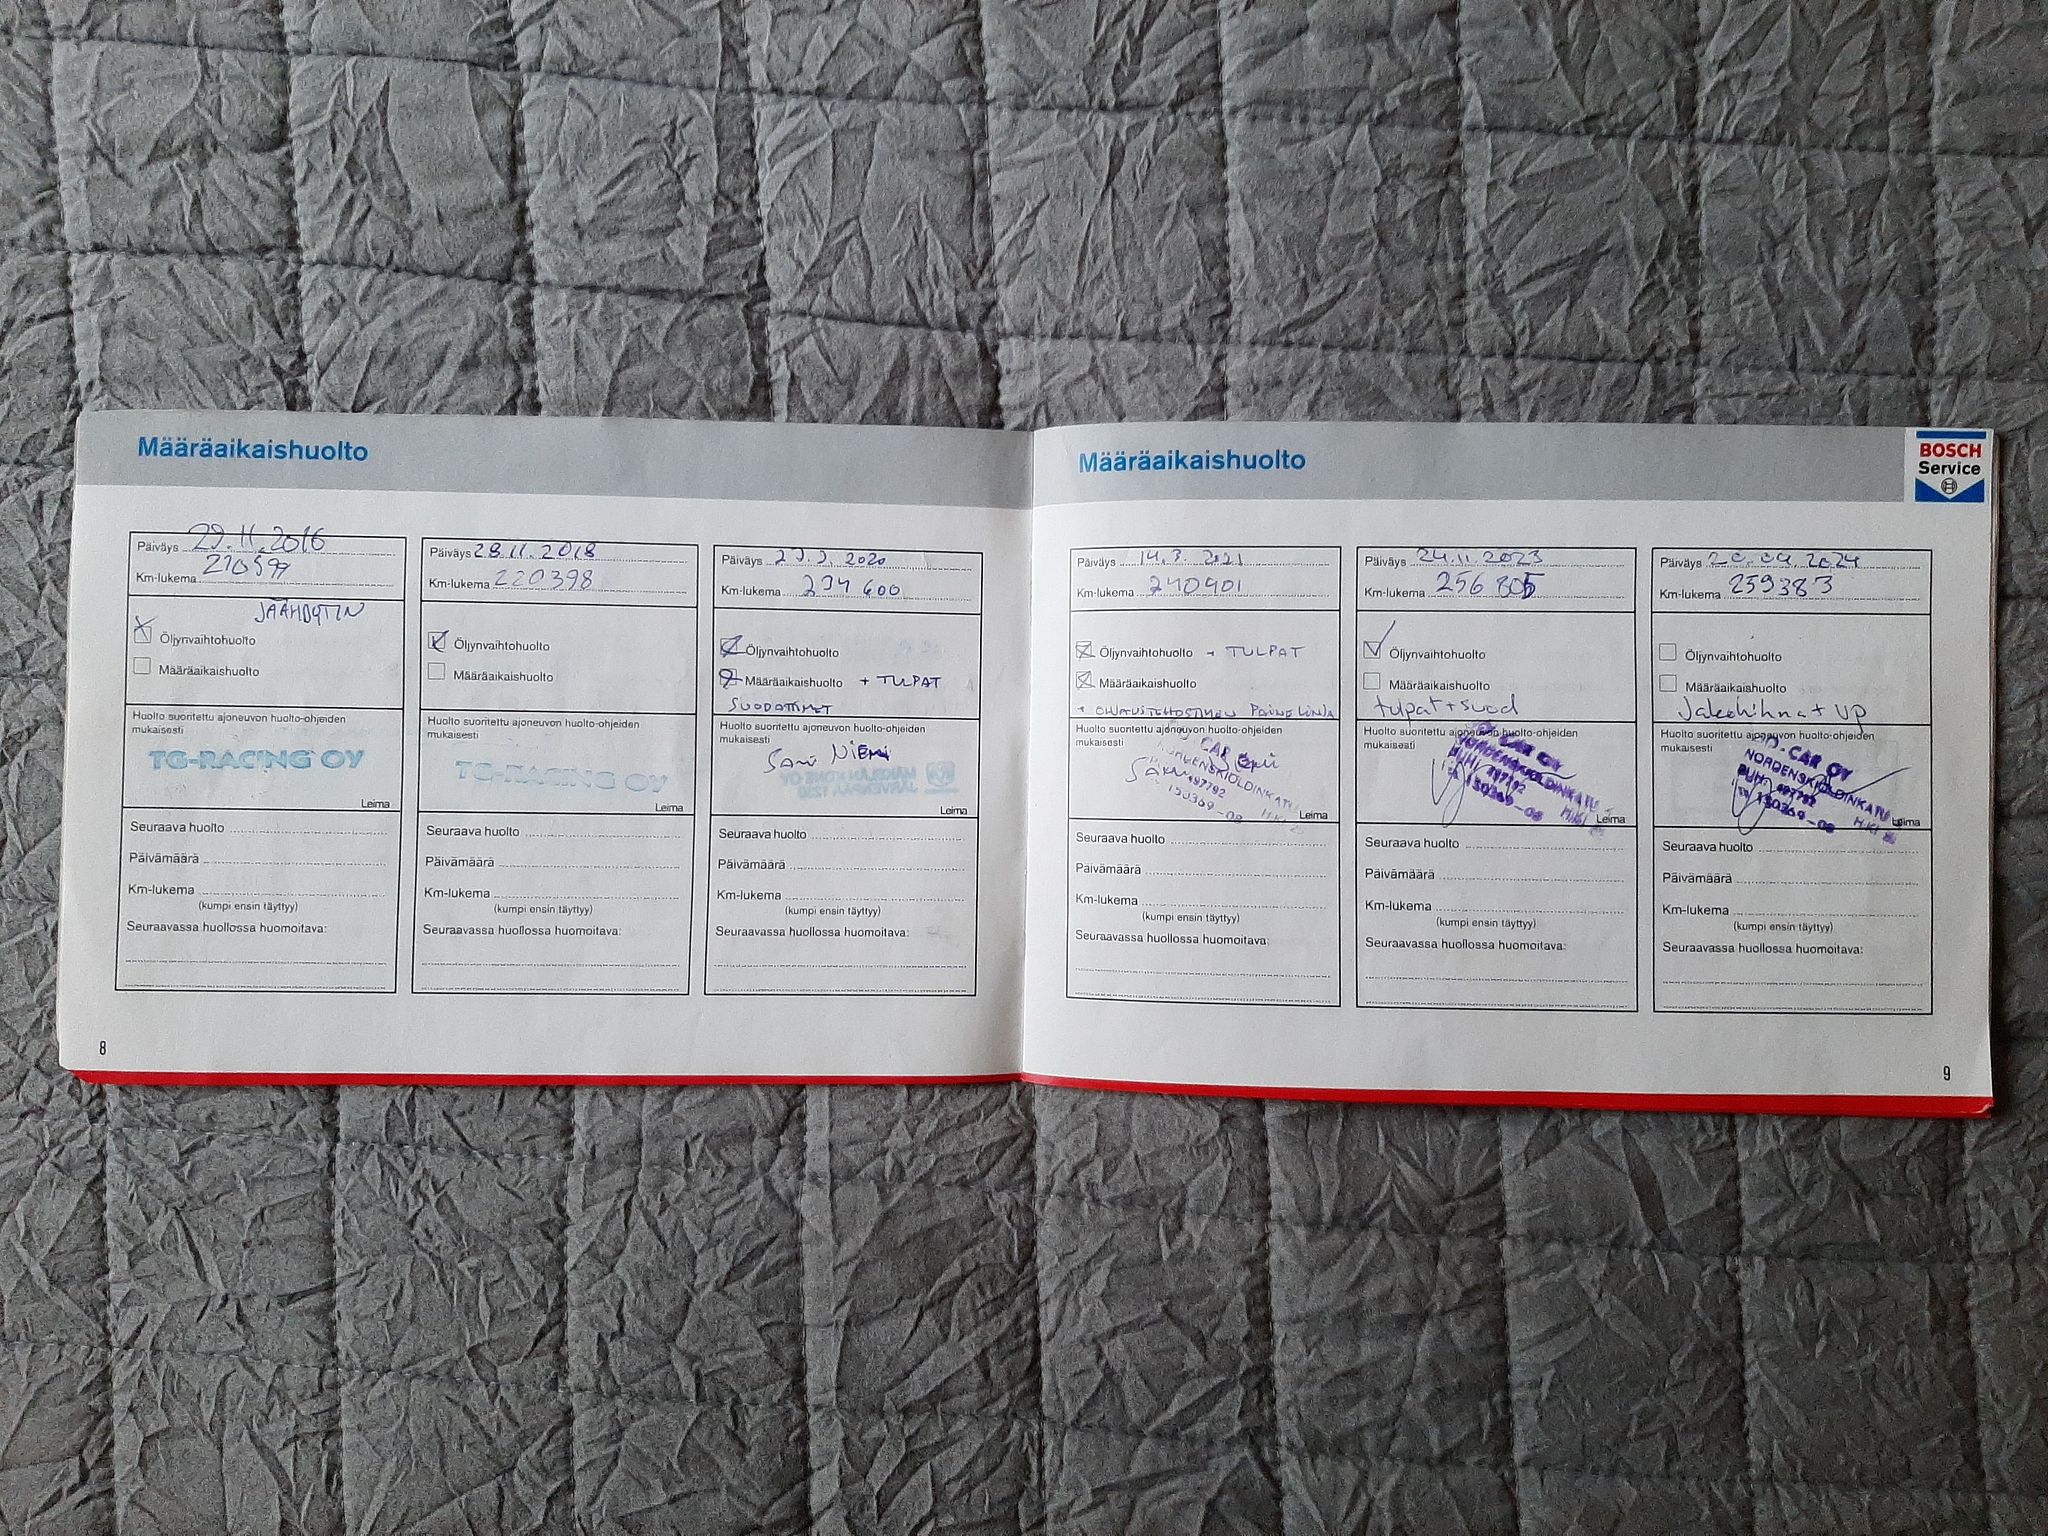 Määräaikaishuolto
Päiväys 29.11.2016
Km-lukema 210599
JÄÄHDYTIN
Öljynvaihtohuolto
Määräaikaishuolto
Huolto suoritettu ajoneuvon huolto-ohjeiden
mukaisesti
TG-RACING OY
Leima
Seuraava huolto
Päivämäärä
Km-lukema
(kumpi ensin täyttyy)
Seuraavassa huollossa huomoitava:
Päiväys 28.11.2018
Km-lukema 220398
Öljynvaihtohuolto
Määräaikaishuolto
Huolto suoritettu ajoneuvon huolto-ohjeiden
mukaisesti
TG-RACING OY
Leima
Seuraava huolto
Päivämäärä
Km-lukema
(kumpi ensin täyttyy)
Seuraavassa huollossa huomoitava:
Päiväys 2020
Km-lukema 234 600
Öljynvaihtohuolto
Määräaikaishuolto + TULPAT
SUODATTIMET
Huolto suoritettu ajoneuvon huolto-ohjeiden
mukaisesti
NIEMI
Leima
Seuraava huolto
Päivämäärä
Km-lukema
(kumpi ensin täyttyy)
Seuraavassa huollossa huomoitava:
8
Määräaikaishuolto
BOSCH
Service
Päiväys 14.3.2021
Km-lukema 240401
Öljynvaihtohuolto + TULPAT
Määräaikaishuolto
+ OHJAUSTEHOSTIMEN PAINELINJA
Huolto suoritettu ajoneuvon huolto-ohjeiden
mukaisesti
CAR
NORDENSKIOLDINKATU
497792
150369-08
HKI
Leima
Seuraava huolto
Päivämäärä
Km-lukema
(kumpi ensin täyttyy)
Seuraavassa huollossa huomoitava:
Päiväys 24.11.2023
Km-lukema 256 805
Öljynvaihtohuolto
Määräaikaishuolto
tulpat + suod
Huolto suoritettu ajoneuvon huolto-ohjeiden
mukaisesti
CAR OY
NORDENSKIOLDINKATU
PUH 497792
150369-08 HKI
Leima
Seuraava huolto
Päivämäärä
Km-lukema
(kumpi ensin täyttyy)
Seuraavassa huollossa huomoitava:
Päiväys 20.04.2024
Km-lukema 259383
Öljynvaihtohuolto
Määräaikaishuolto
Jakohihna + VP
Huolto suoritettu ajoneuvon huolto-ohjeiden
mukaisesti
CAR OY
NORDENSKIOLDINKATU
PUH 497792
150369-08 HKI
Leima
Seuraava huolto
Päivämäärä
Km-lukema
(kumpi ensin täyttyy)
Seuraavassa huollossa huomoitava:
9